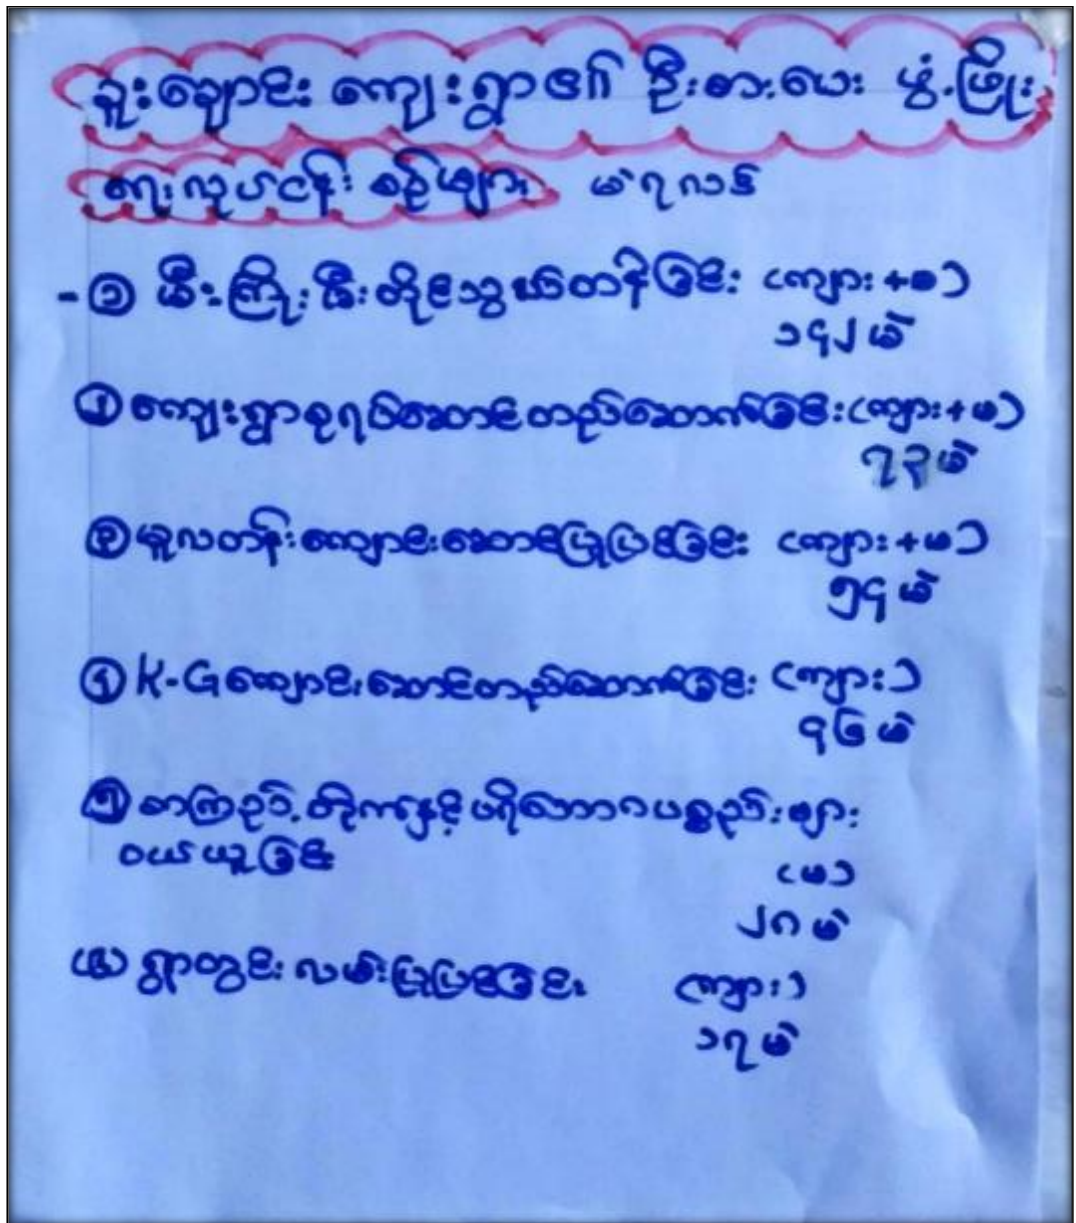 ခူးချောင်း ကျေးရွာ၏ ဦးစားပေး ဖွံ့ဖြိုး
ရေးလုပ်ငန်း စဉ်များ မဲရလဒ်
-၁ မီးကြိုး မီးတိုင်သွယ်တန်းခြင်း (ကျား+မ)
၁၄၂ မဲ
၂ ကျေးရွာစုရပ်ဆောင်တည်ဆောက်ခြင်း (ကျား+မ)
၇၃ မဲ
၃ မူလတန်းကျောင်းဆောင်ပြုပြင်ခြင်း (ကျား+မ)
၅၄ မဲ
၄ K-G ကျောင်းဆောင်တည်ဆောက်ခြင်း (ကျား)
၄၆ မဲ
၅ စာကြည့်တိုက်နှင့် ပရိဘောဂပစ္စည်းများ
ဝယ်ယူခြင်း
(မ)
၂၈ မဲ
(၆) ရွာတွင်းလမ်းပြုပြင်ခြင်း (ကျား)
၁၇ မဲ